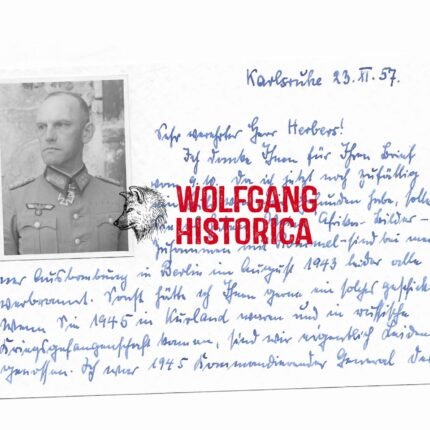 Karlsruhe 23. XI. 57.
Sehr verehrter Herr Herbers!
Ich danke Ihnen für Ihren Brief
vom 9.10. Da ich jetzt noch zufällig
WOLFGANG
HISTORICA
Afrika-Bilder-
zusammen mit Rommel-sind bei mei
ner Ausbombung in Berlin im August 1943 leider alle
verbrannt. Sonst hätte ich Ihnen gerne ein solches geschickt
Wenn Sie 1945 in Kurland waren und in russische
Kriegsgefangenschaft kamen, sind wir eigentlich Leidens
genossen. Ich war 1945 Kommandierender General des